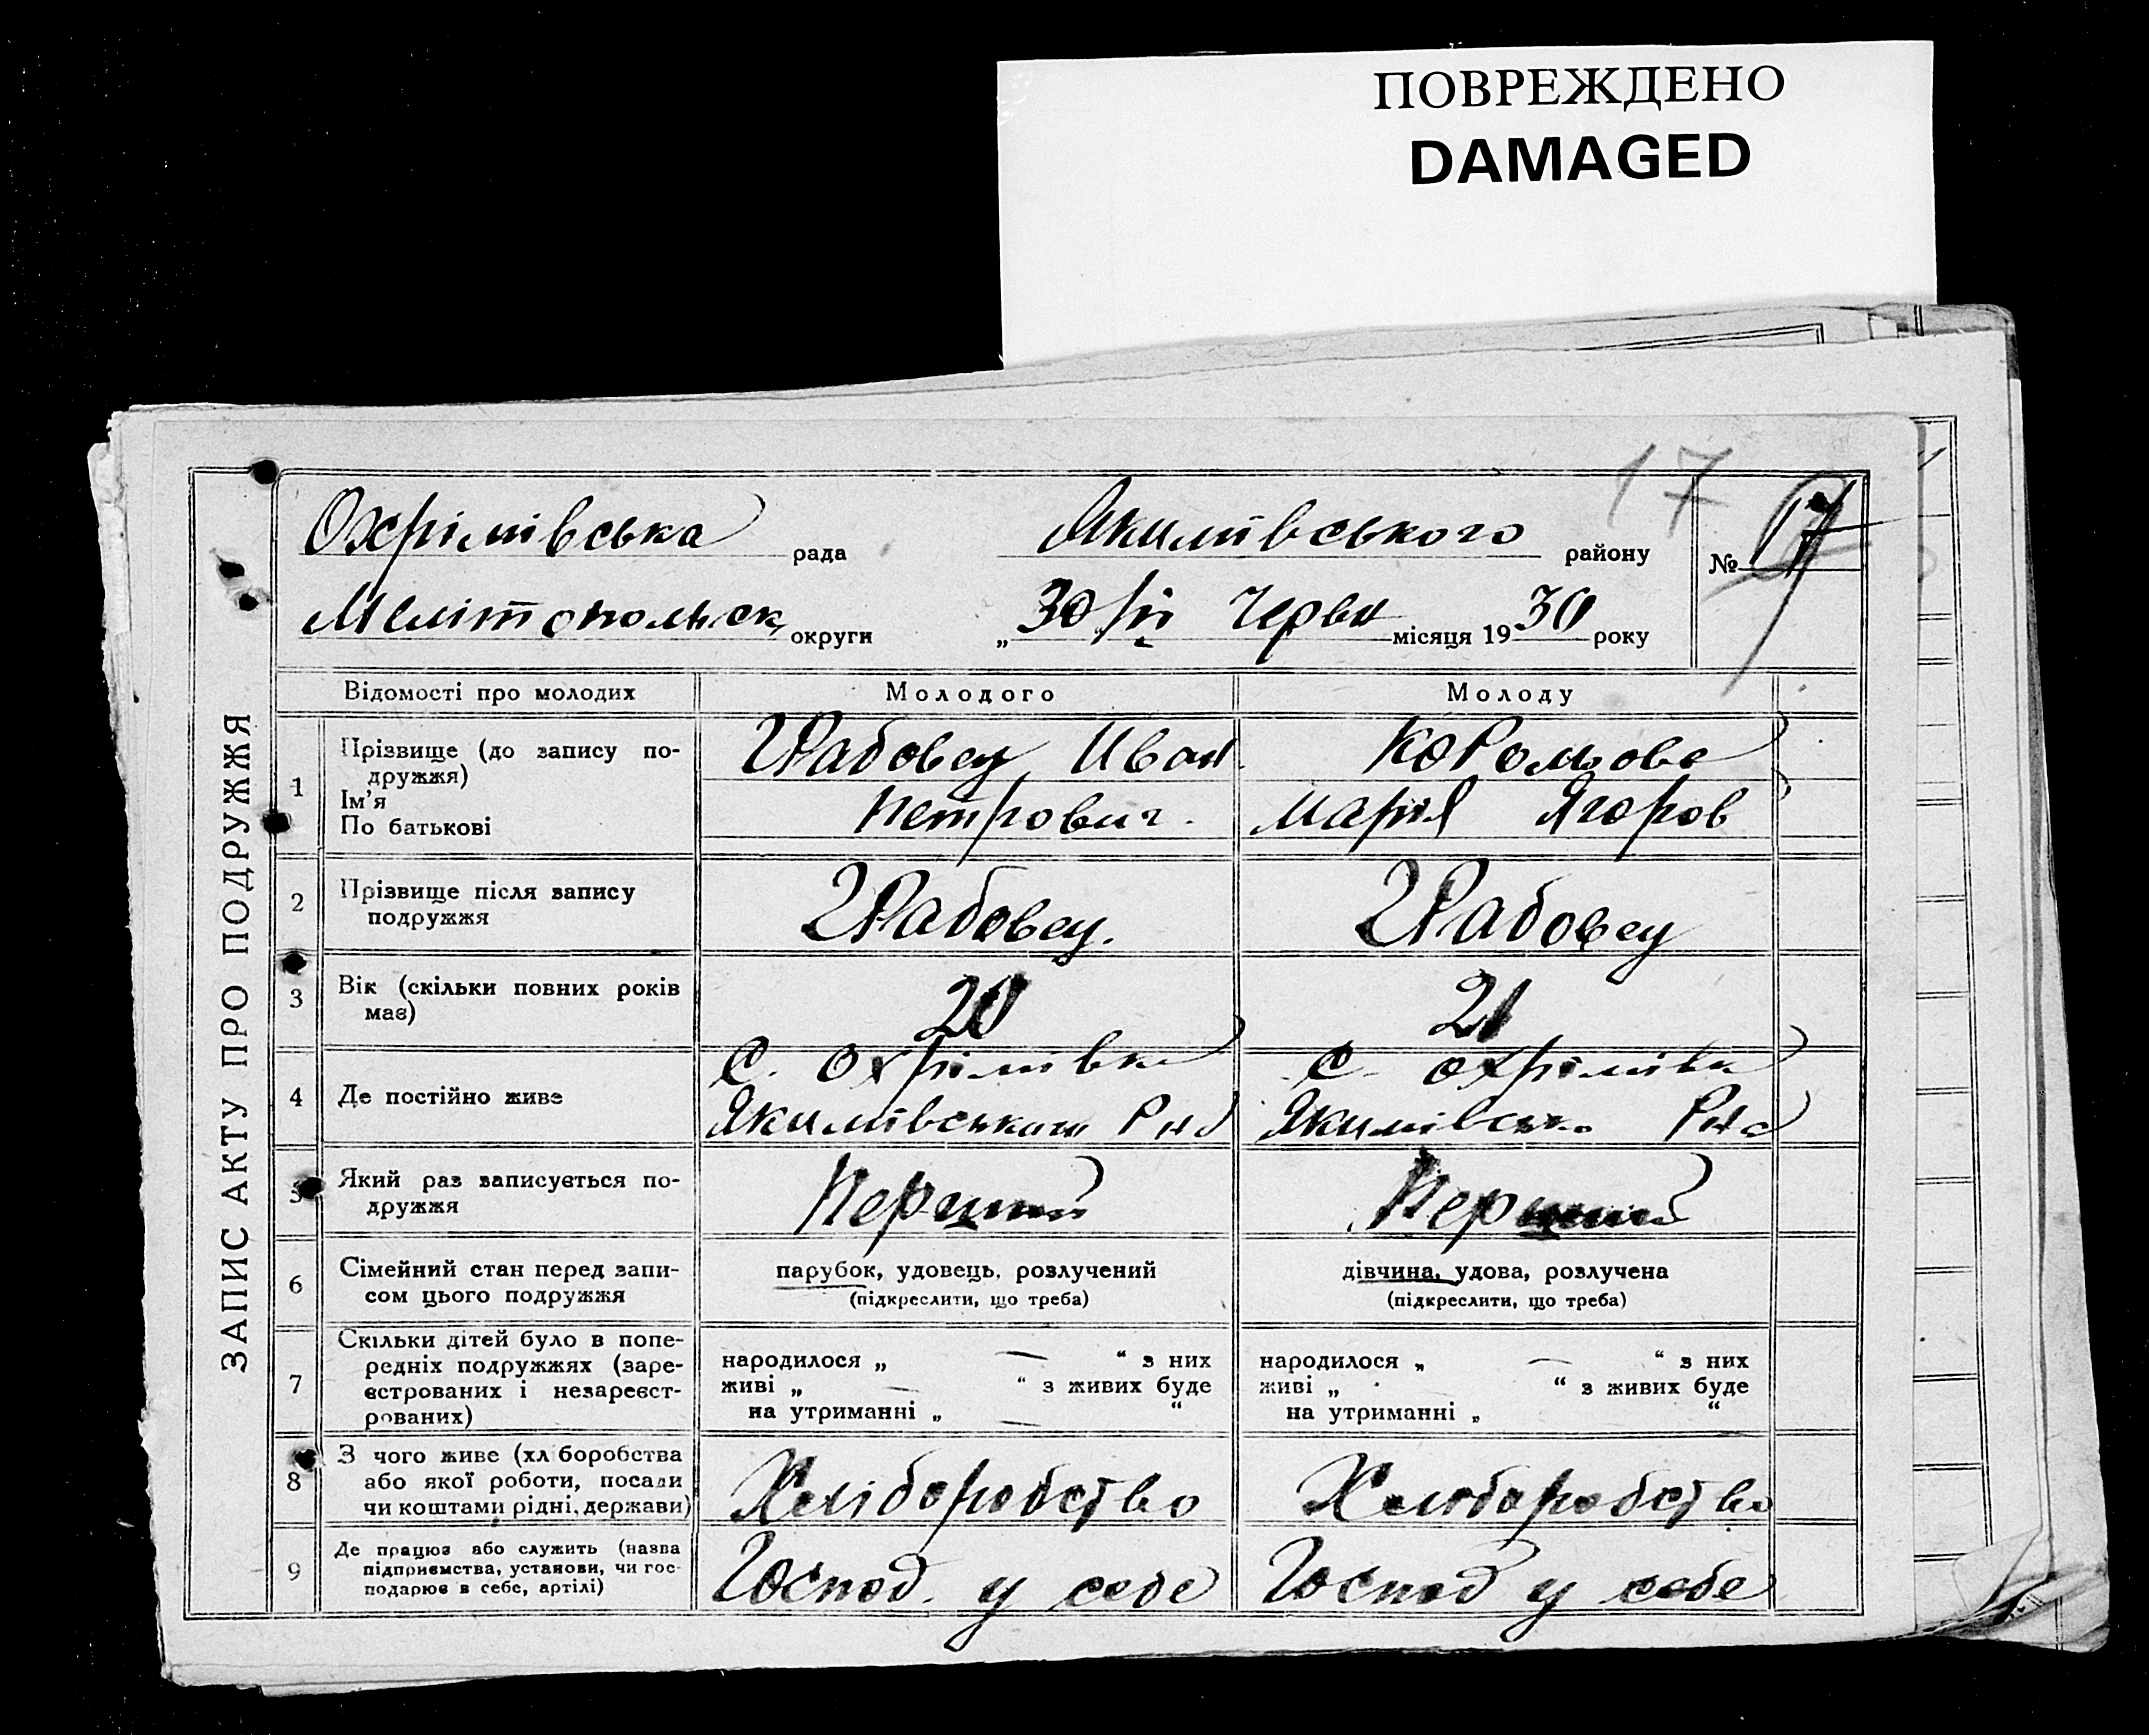 ПОВРЕЖДЕНО
DAMAGED
17
Охрімівська рада Якимівського району № 17
Мелітопольск округи „30/VI Червн місяця 1930 року
ЗАПИС АКТУ ПРО ПОДРУЖЖЯ
Відомості про молодих Молодого Молоду
1 Прізвище (до запису по-
дружжя)
Ім’я
По батькові
Грабовец Иван
Петрович.
Корольова
Марія Ягоров
2 Прізвище після запису
подружжя
Грабовец. Грабовец
3 Вік (скільки повних років
має)
20 21
4 Де постійно живе
С. Охрімівка
Якимівського Рна
С. Охрімівка
Якимівсько Рна
5 Який раз записується по-
дружжя
Перший Перший
6 Сімейний стан перед запи-
сом цього подружжя
парубок, удовець, розлучений
(підкреслити, що треба)
дівчина, удова, розлучена
(підкреслити, що треба)
7 Скільки дітей було в попе-
редніх подружжях (заре-
єстрованих і незареєст-
рованих)
народилося „ — “ з них
живі „ — “ з живих буде
на утриманні „ — “
народилося „ — “ з них
живі „ “ з живих буде
на утриманні „ “
8 З чого живе (хліборобства
або якої роботи, посади
чи коштами рідні, держави)
Хеліборобство Хелюборобство
9 Де працює або служить (назва
підприємства, установи, чи гос-
подарює в себе, артілі)
Господ. у себе Господ у себе